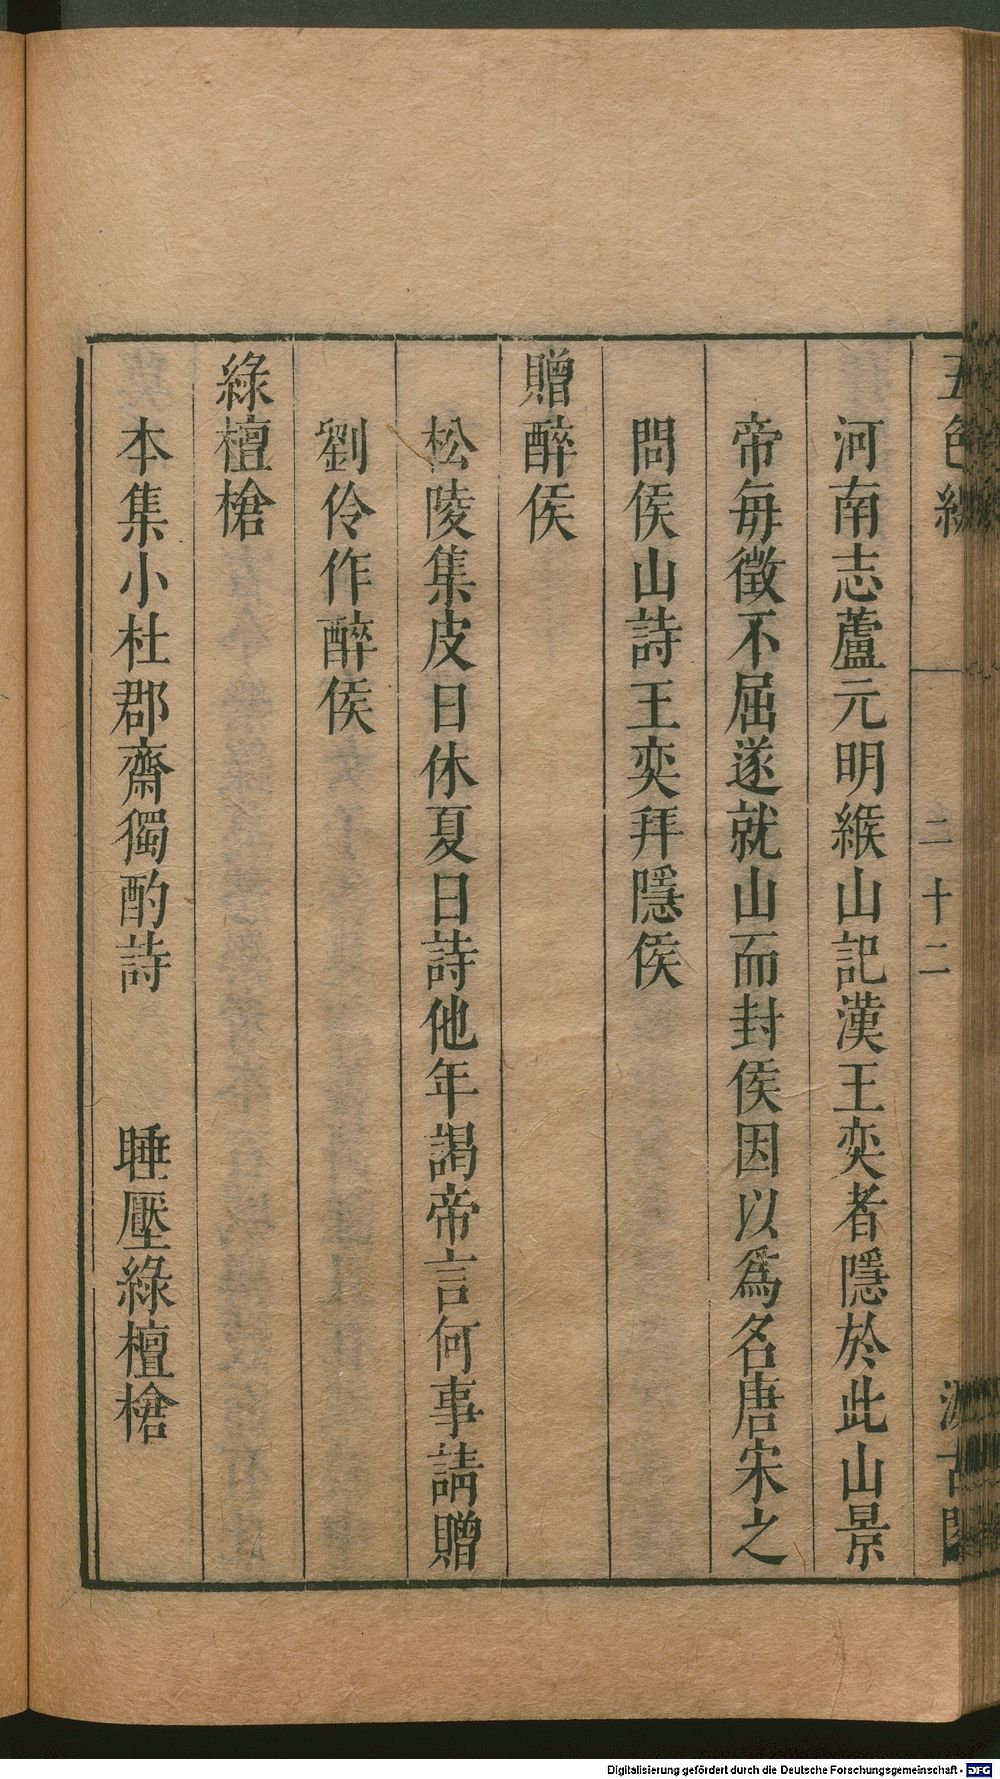 五色線
二十二
河南志蘆元明緱山記漢王奕者隱於此山景
帝每徵不屈遂就山而封侯因以為名唐宋之
問侯山詩王奕拜隱侯
贈醉侯
松陵集皮日休夏日詩他年謁帝言何事請贈
劉伶作醉侯
綠檀槍
本集小杜郡齋獨酌詩 睡壓綠檀槍
Digitalisierung gefördert durch die Deutsche Forschungsgemeinschaft - DFG